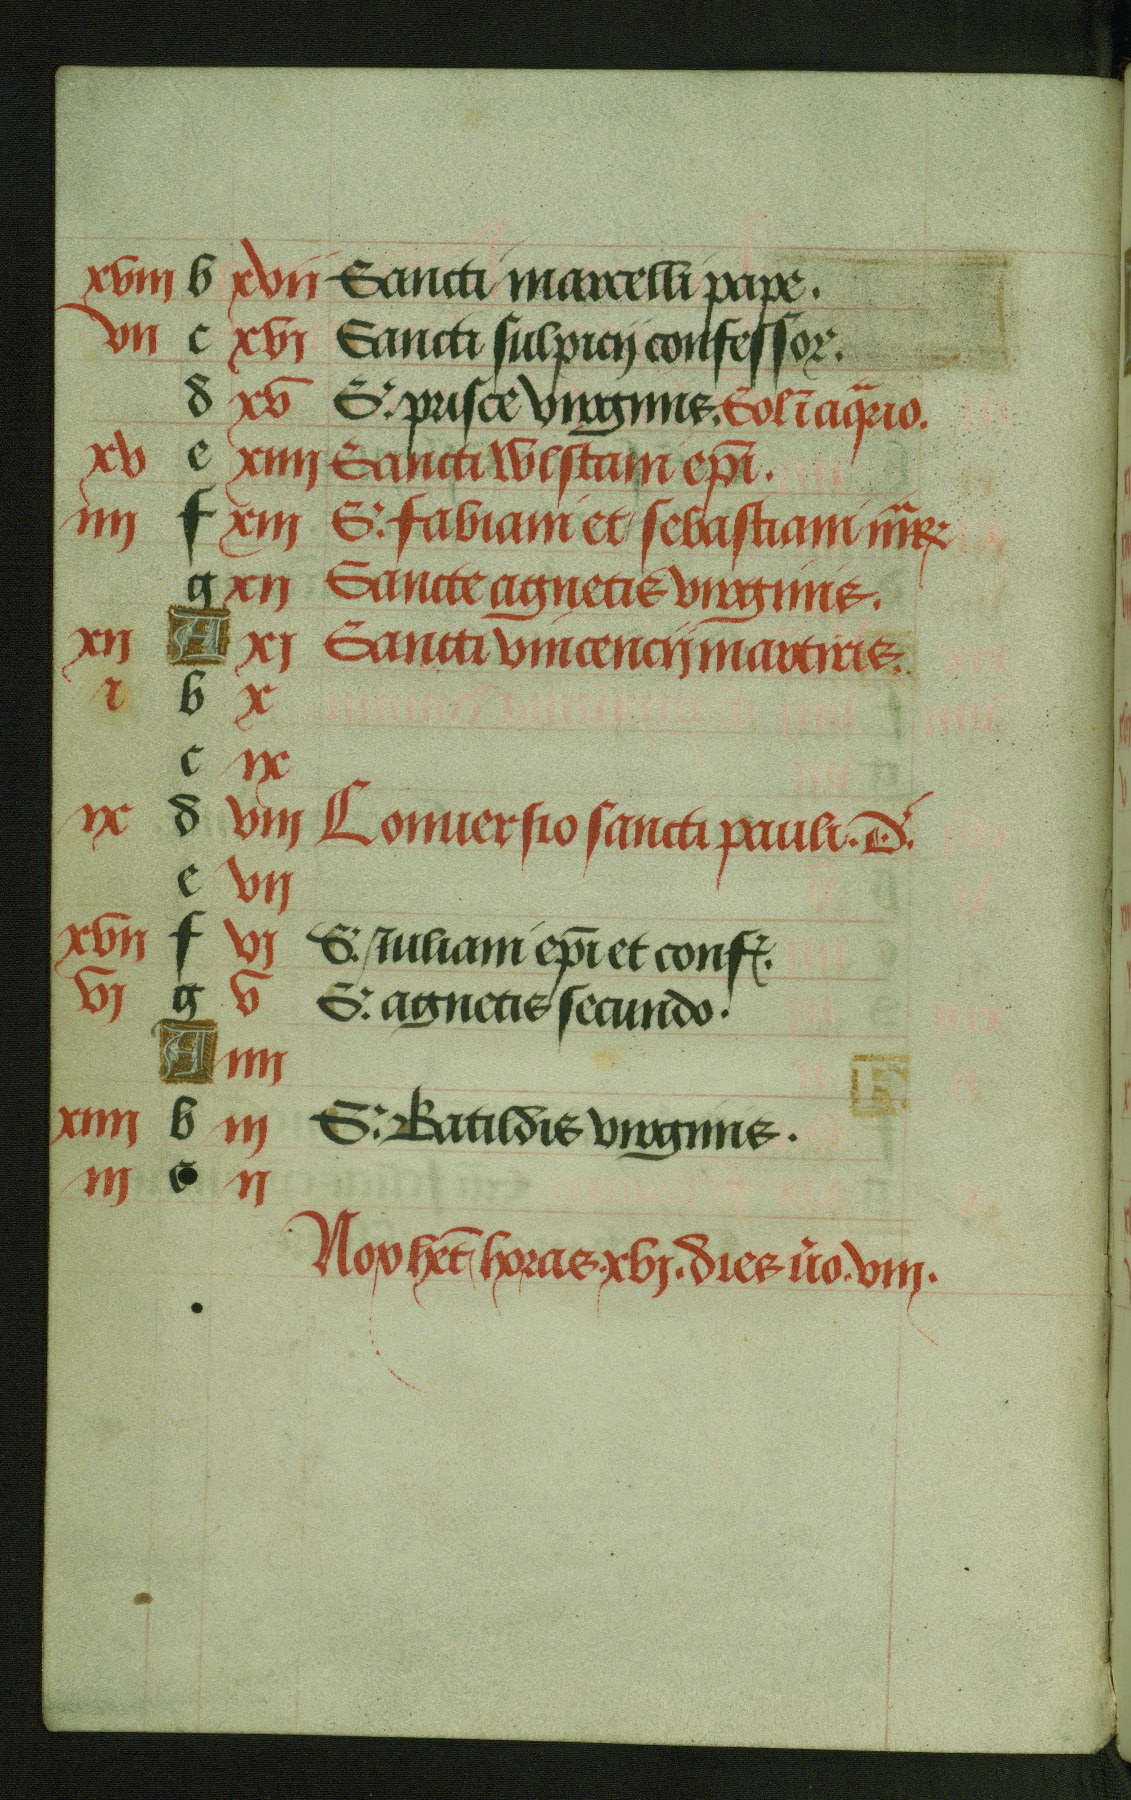 xviii b xvii Sancti marcelli pape.
vii c xvi Sancti sulpicij confessor.
d xv S. prisce virginis. Sol ī aq̄rio.
xv e xiiii Sancti wlstani ep̄i.
iiii f xiii S. fabiani et sebastiani m̄r
g xii Sancte agnetis virginis.
xii A xi Sancti vincencij martiris.
i b x
c ix
ix d viii Conuersio sancti pauli. D.
e vii
xvii f vi S. Iuliani ep̄i et conf.
vi g v S. agnetis secundo.
A iiii
xiiii b iii S. Batildis virginis.
iii c ii
Nox het̄ horas. xvj. dies ūo. viii.